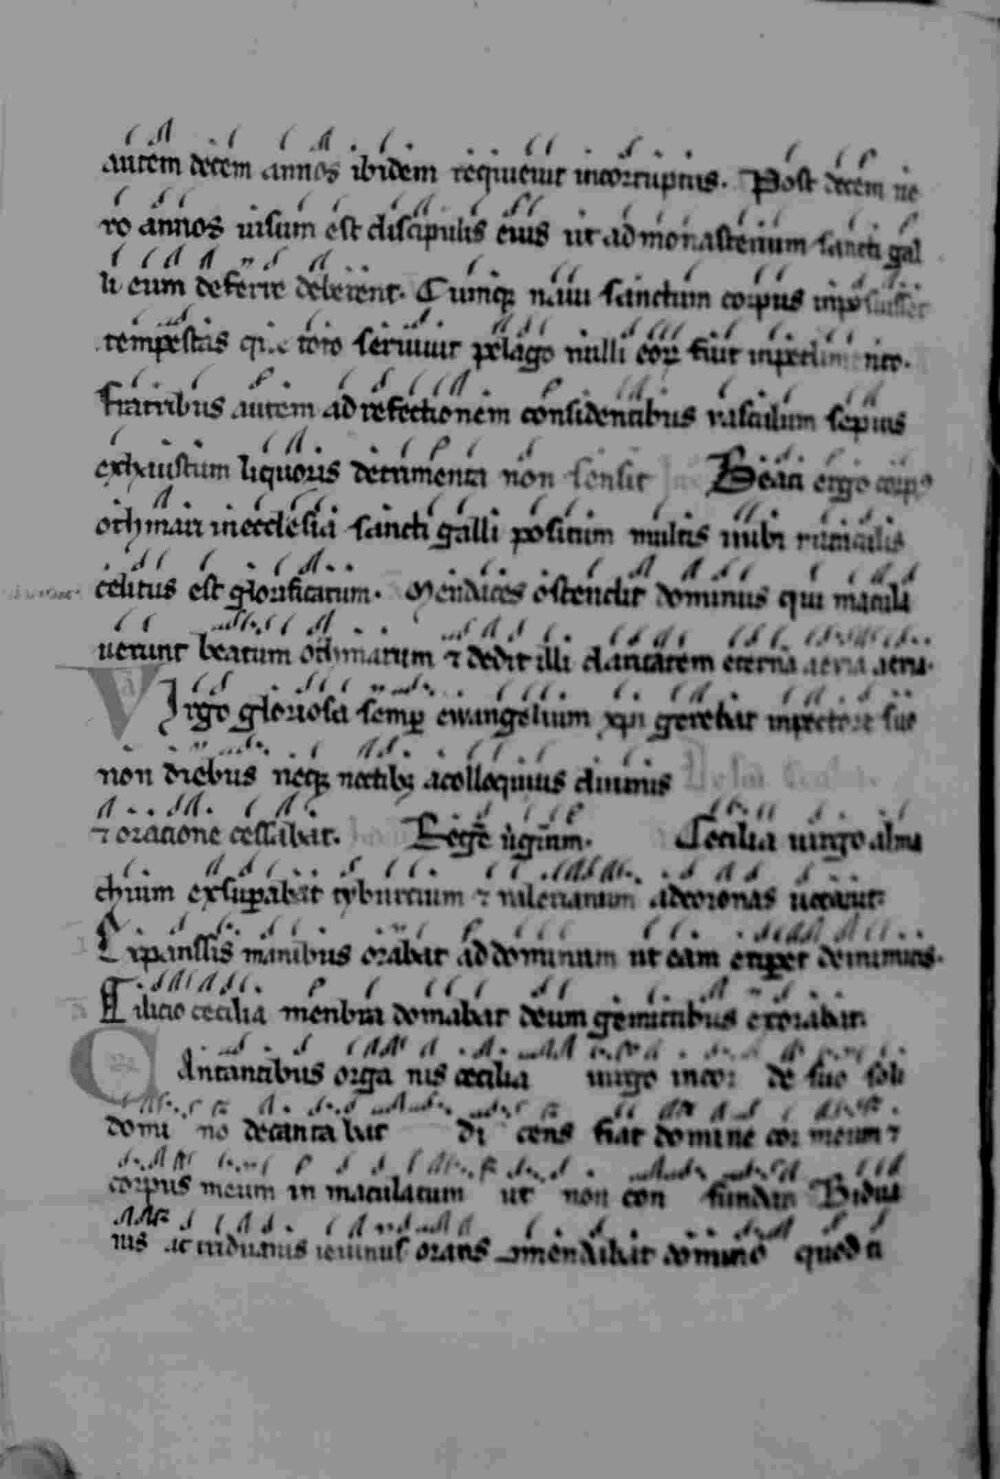 autem decem annos ibidem requieuit incorruptus. Post decem ue
ro annos uisum est discipulis eius ut ad monasterium sancti gal
li eum deferre deberent. Cumq; naui sanctum corpus inposuisset
tempestas que toto seruiuit pelago nulli eoꝝ fuit inpedimento.
Fratribus autem ad refectionem considentibus vasculum sepius
exhaustum liquoris detrimenta non sensit Beati ergo corpꝰ
othmari in ecclesia sancti galli positum multis nubi
celitus est glorificatum. Mendaces ostendit dominus qui macula
uerunt beatum othmarum ⁊ dedit illi claritatem eternam aeuia aeuia.
Virgo gloriosa semp ewangelium xpi gerebat in pectore suo
non diebus neq; noctibꝫ a colloquiis diuinis
⁊ oratione cessabat. Rege uginum. Cecilia uirgo alma
chium exsupabat tyburcium ⁊ valerianum ad coronas uocauit
Expanssis manibus orabat ad dominum ut eam eriperet de inimicis.
Cilicio cecilia menbra domabat deum gemitibus exorabat.
Cantantibus orga nis cecilia uirgo incor de suo soli
domi no decanta bat di cens fiat domine cor meum ⁊
corpus meum in maculatum ut non con fundar Bidua
nis ac triduanis ieiuniis orans ꝯmendabat domino quod ti